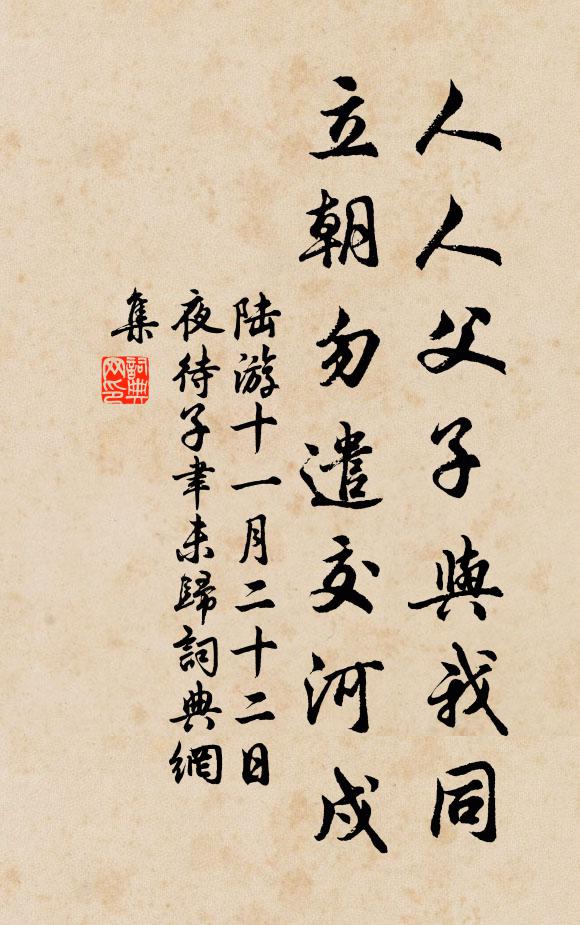 人人父子與我同
立朝勿遣交河戍
陆游十一月二十二日
夜待子聿未歸詞典網
集
詞典网印